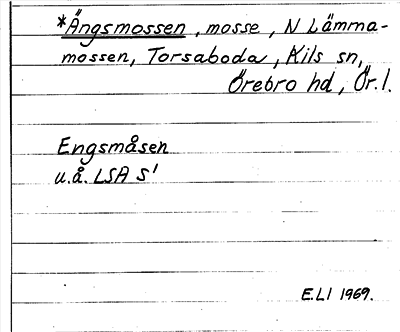 *Ängsmossen, mosse, N Lämma-
mossen, Torsaboda, Kils sn,
Örebro hd, Ör. l.
Engsmåsen
u.å. LSA S¹
E.LI 1969.